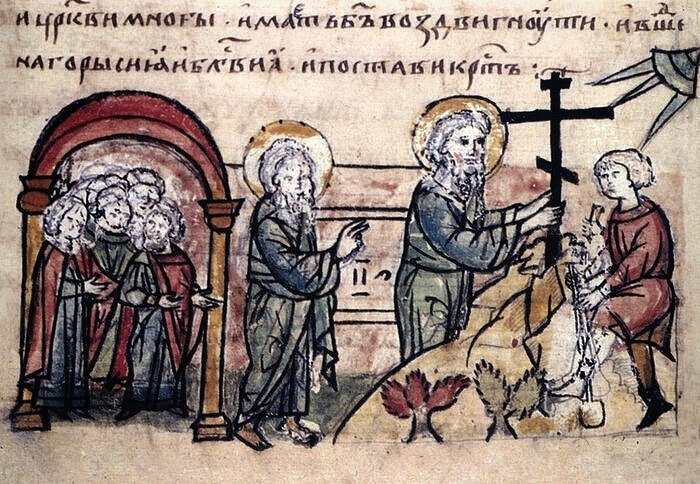 и цр҃кви многы · имаⷷть б҃ъ воздвигноути · и вшеⷣ
на горы сиꙗ и бл҃ви ꙗ · и постави кр҃тъ :